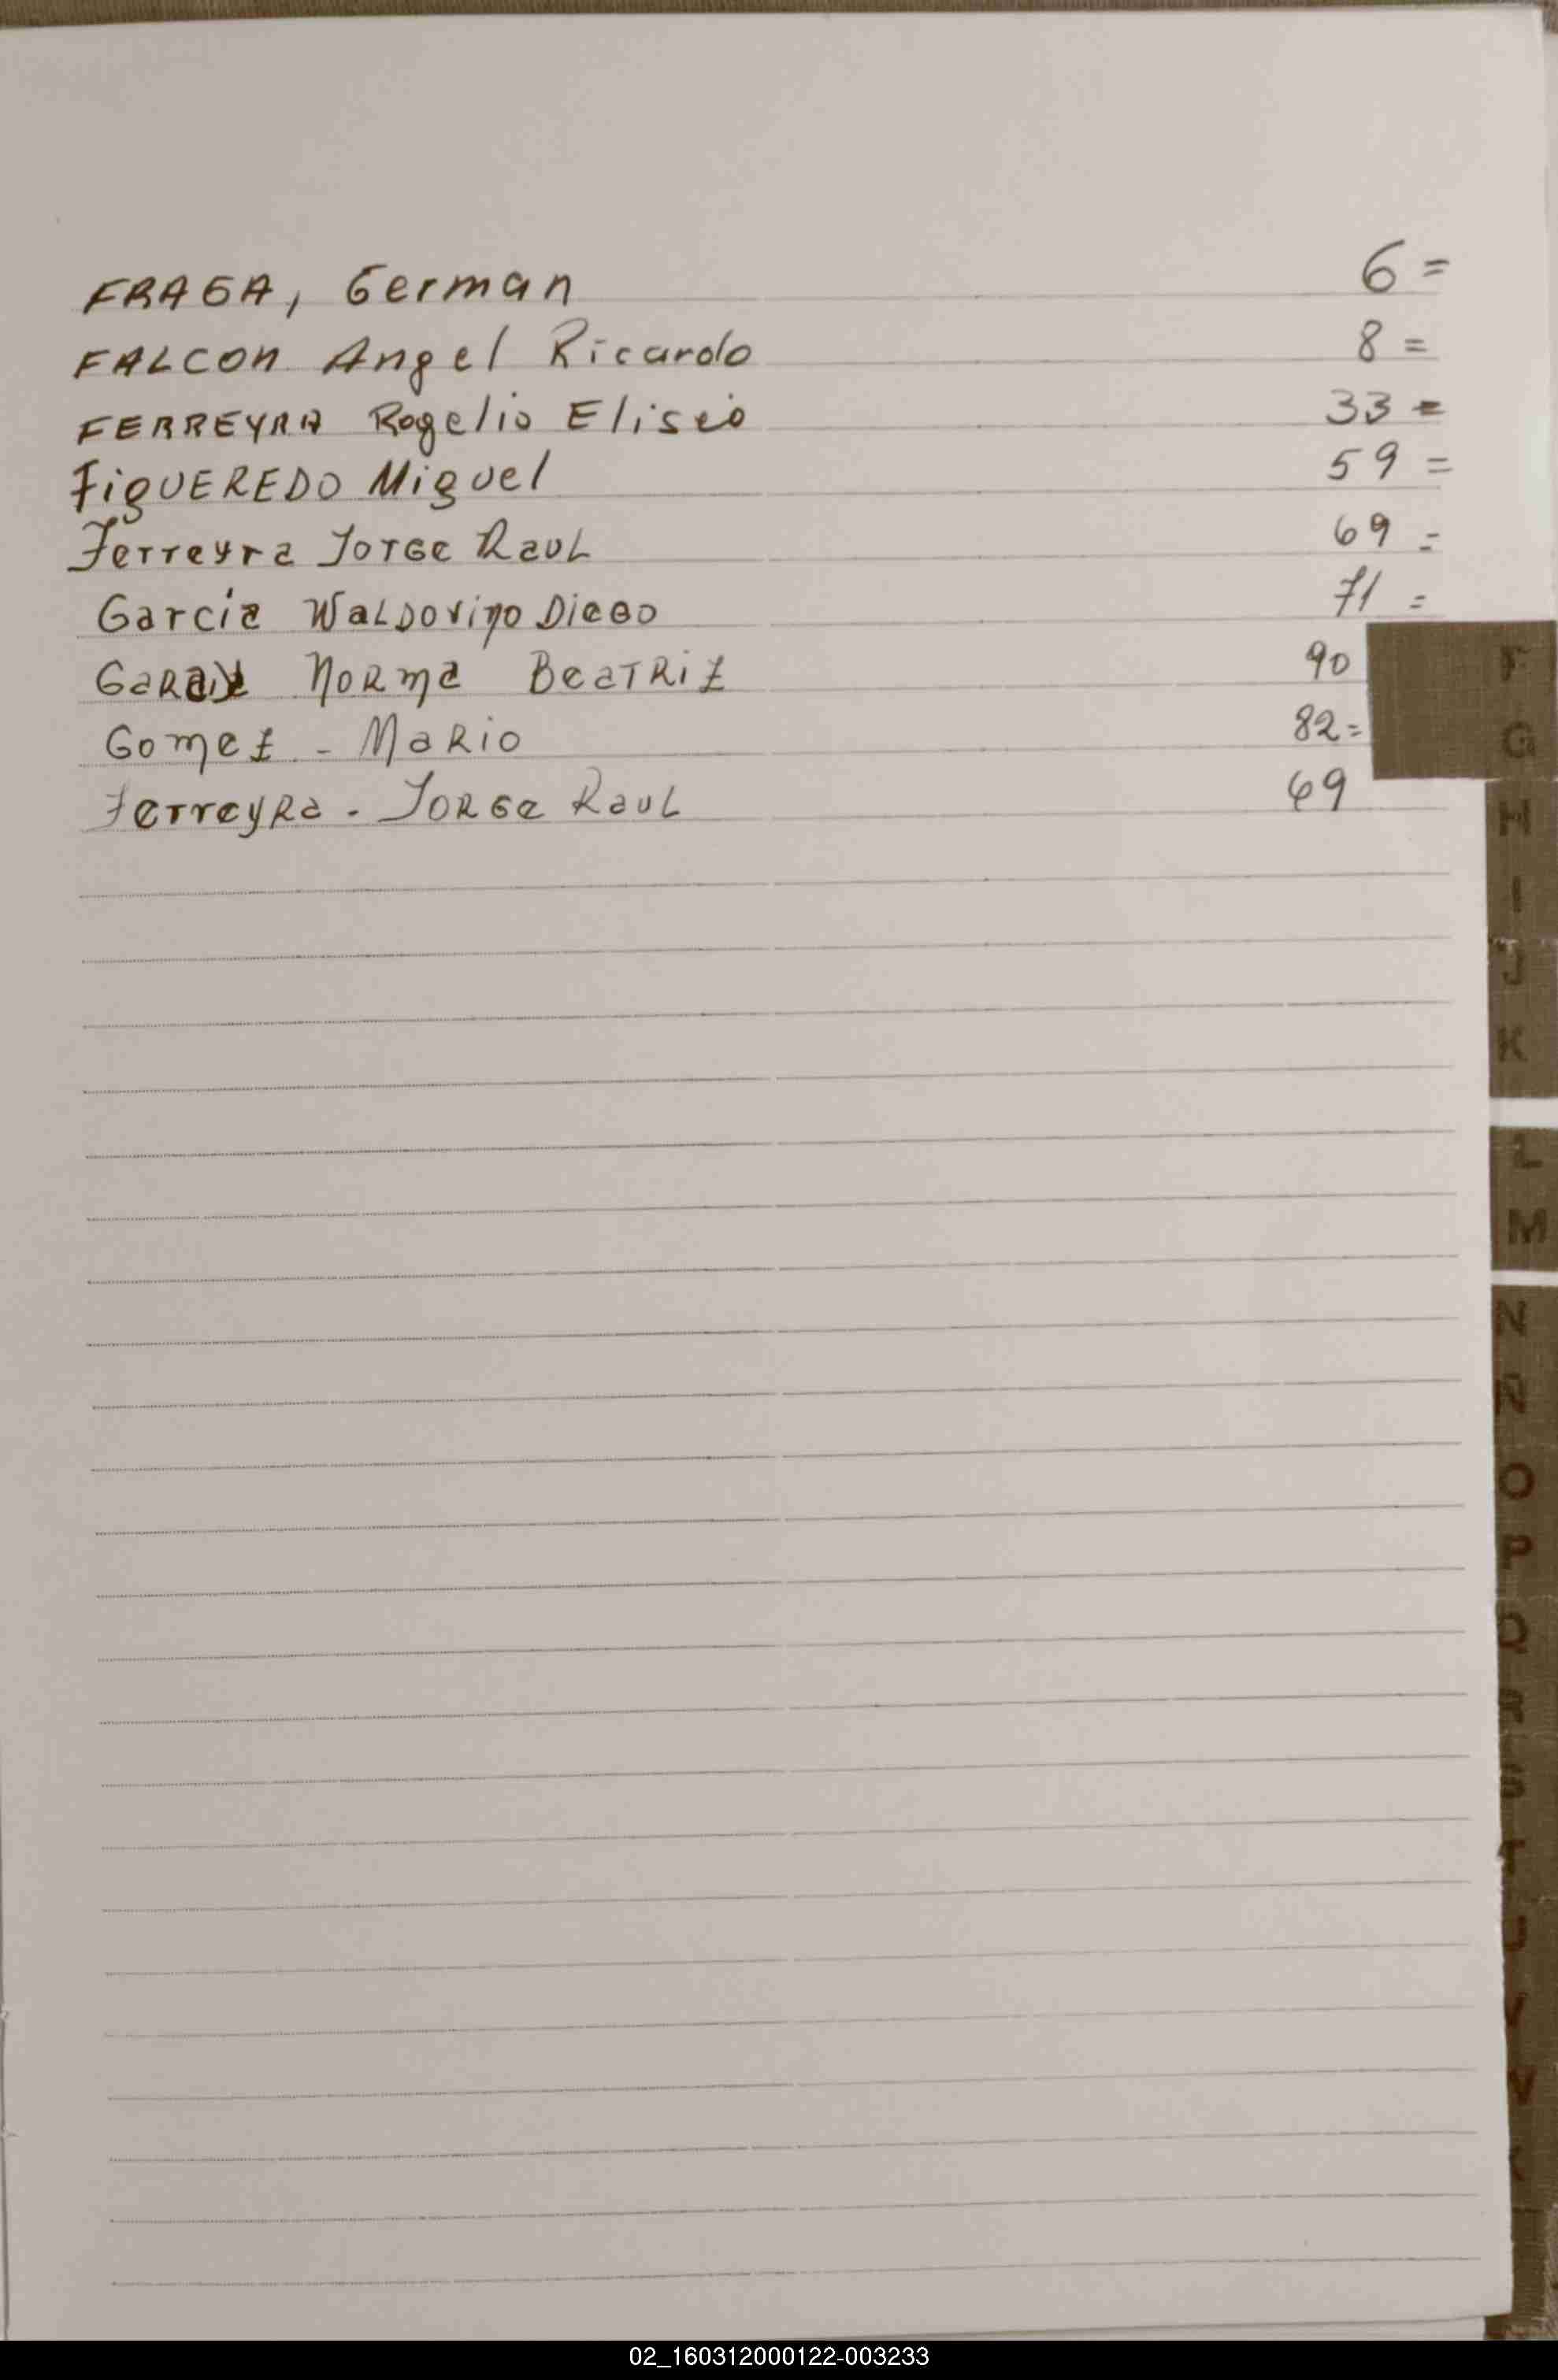 FRAGA, German 6 =
FALCON Angel Ricardo 8 =
FERREYRA Rogelio Eliseo 33 =
FiGUEREDO Miguel 59 =
Ferreyra Jorge Raul 69 =
Garcia WaLDoviNo DieGo 71 =
GaRay NoRma BeaTRiz 90
Gomez - MaRio 82 =
FerreyRa - JoRGe RauL 69
F
G
H
I
J
K
L
M
N
Ñ
O
P
Q
R
S
T
U
V
W
02_160312000122-003233